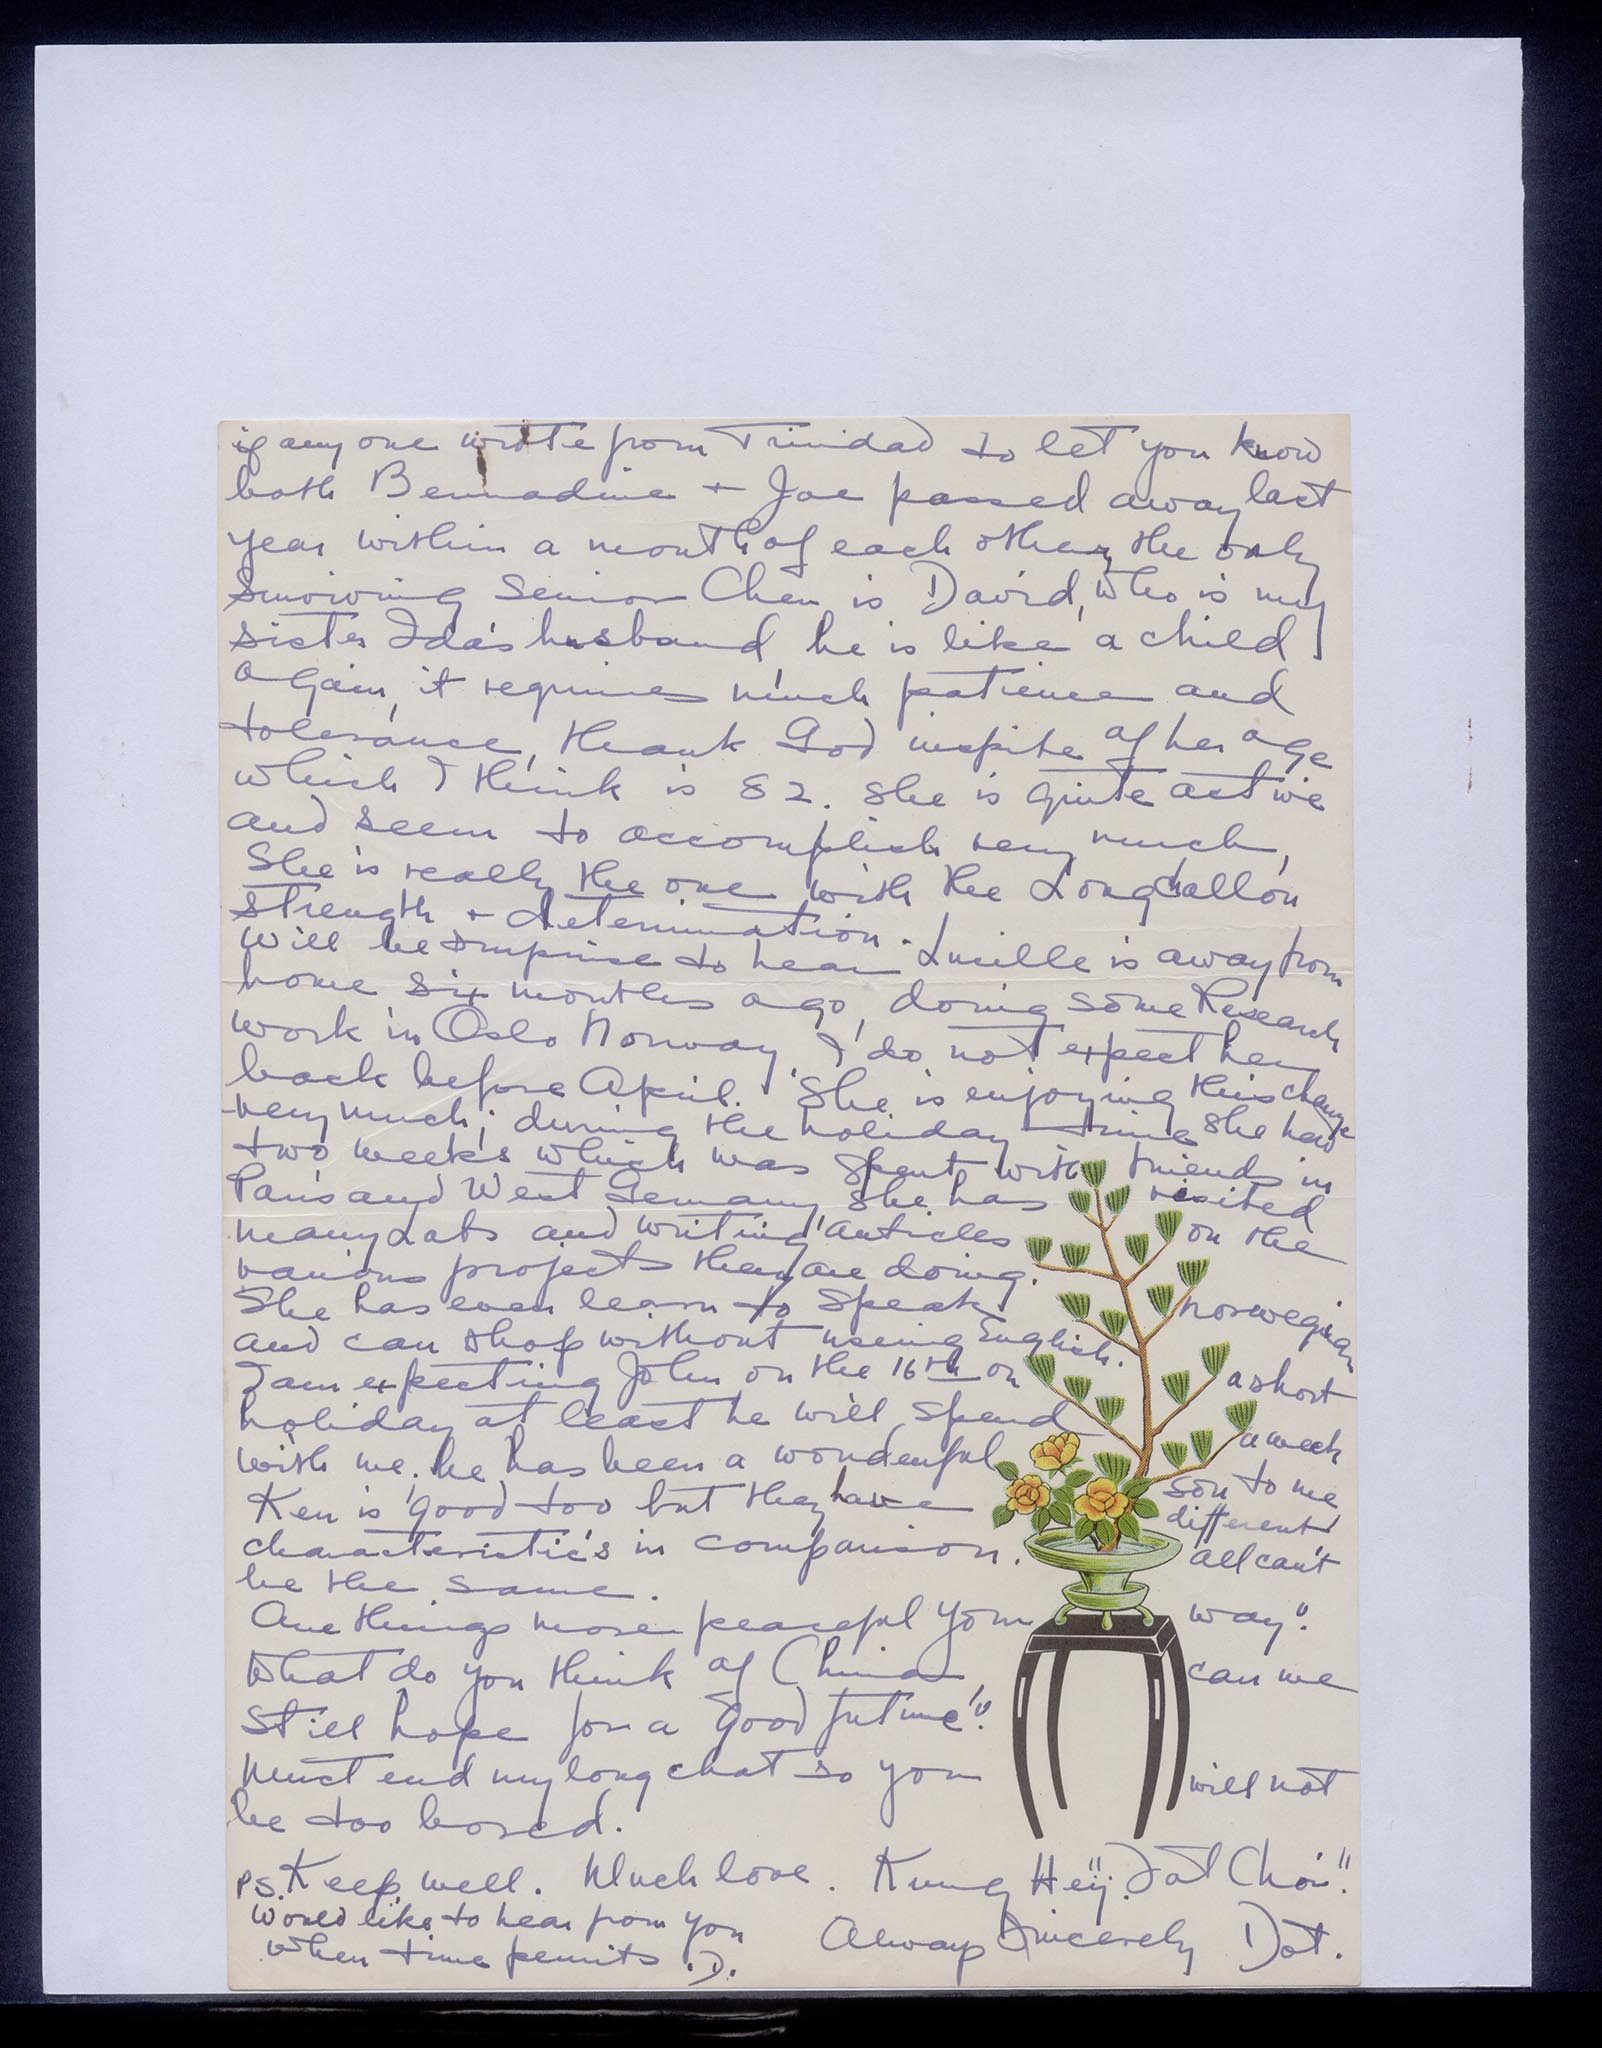 if any one wrote from Trinidad to let you know
both Bernadine + Joe passed away last
year within a month of each other, the only
surviving Senior Chen is David, who is my
sister Ida's husband, he is like a child
again, it requires much patience and
tolerance, thank God inspite of her age
which I think is 82. she is quite active
and seem to accomplish very much,
She is really the one with the Longchallon
strength + determination.
Will be surprise to hear Lucille is away from
home six months ago, doing some Research
work in Oslo Norway, I do not expect her
back before April. She is enjoying this change
very much; during the holiday time she had
two weeks which was spent with friends in
Paris and West Germany, she has visited
many Labs and writing articles on the
various projects they are doing.
She has even learn to speak Norwegian
and can shop without useing English.
I am expecting John on the 16th on a short
holiday at least he will spend a week
with me. he has been a wonderful son to me
Ken is good too but they have different
characteristic's in comparison. all can't
be the same.
Are things more peaceful your way?
What do you think of China can we
still hope for a good future?
Must end my long chat so you will not
be too bored.
Keep well. Much love. Kung Hey!! Fat Choi!!
Always Sincerely Dot.
P.S. Would like to hear from you
when time permits .D.